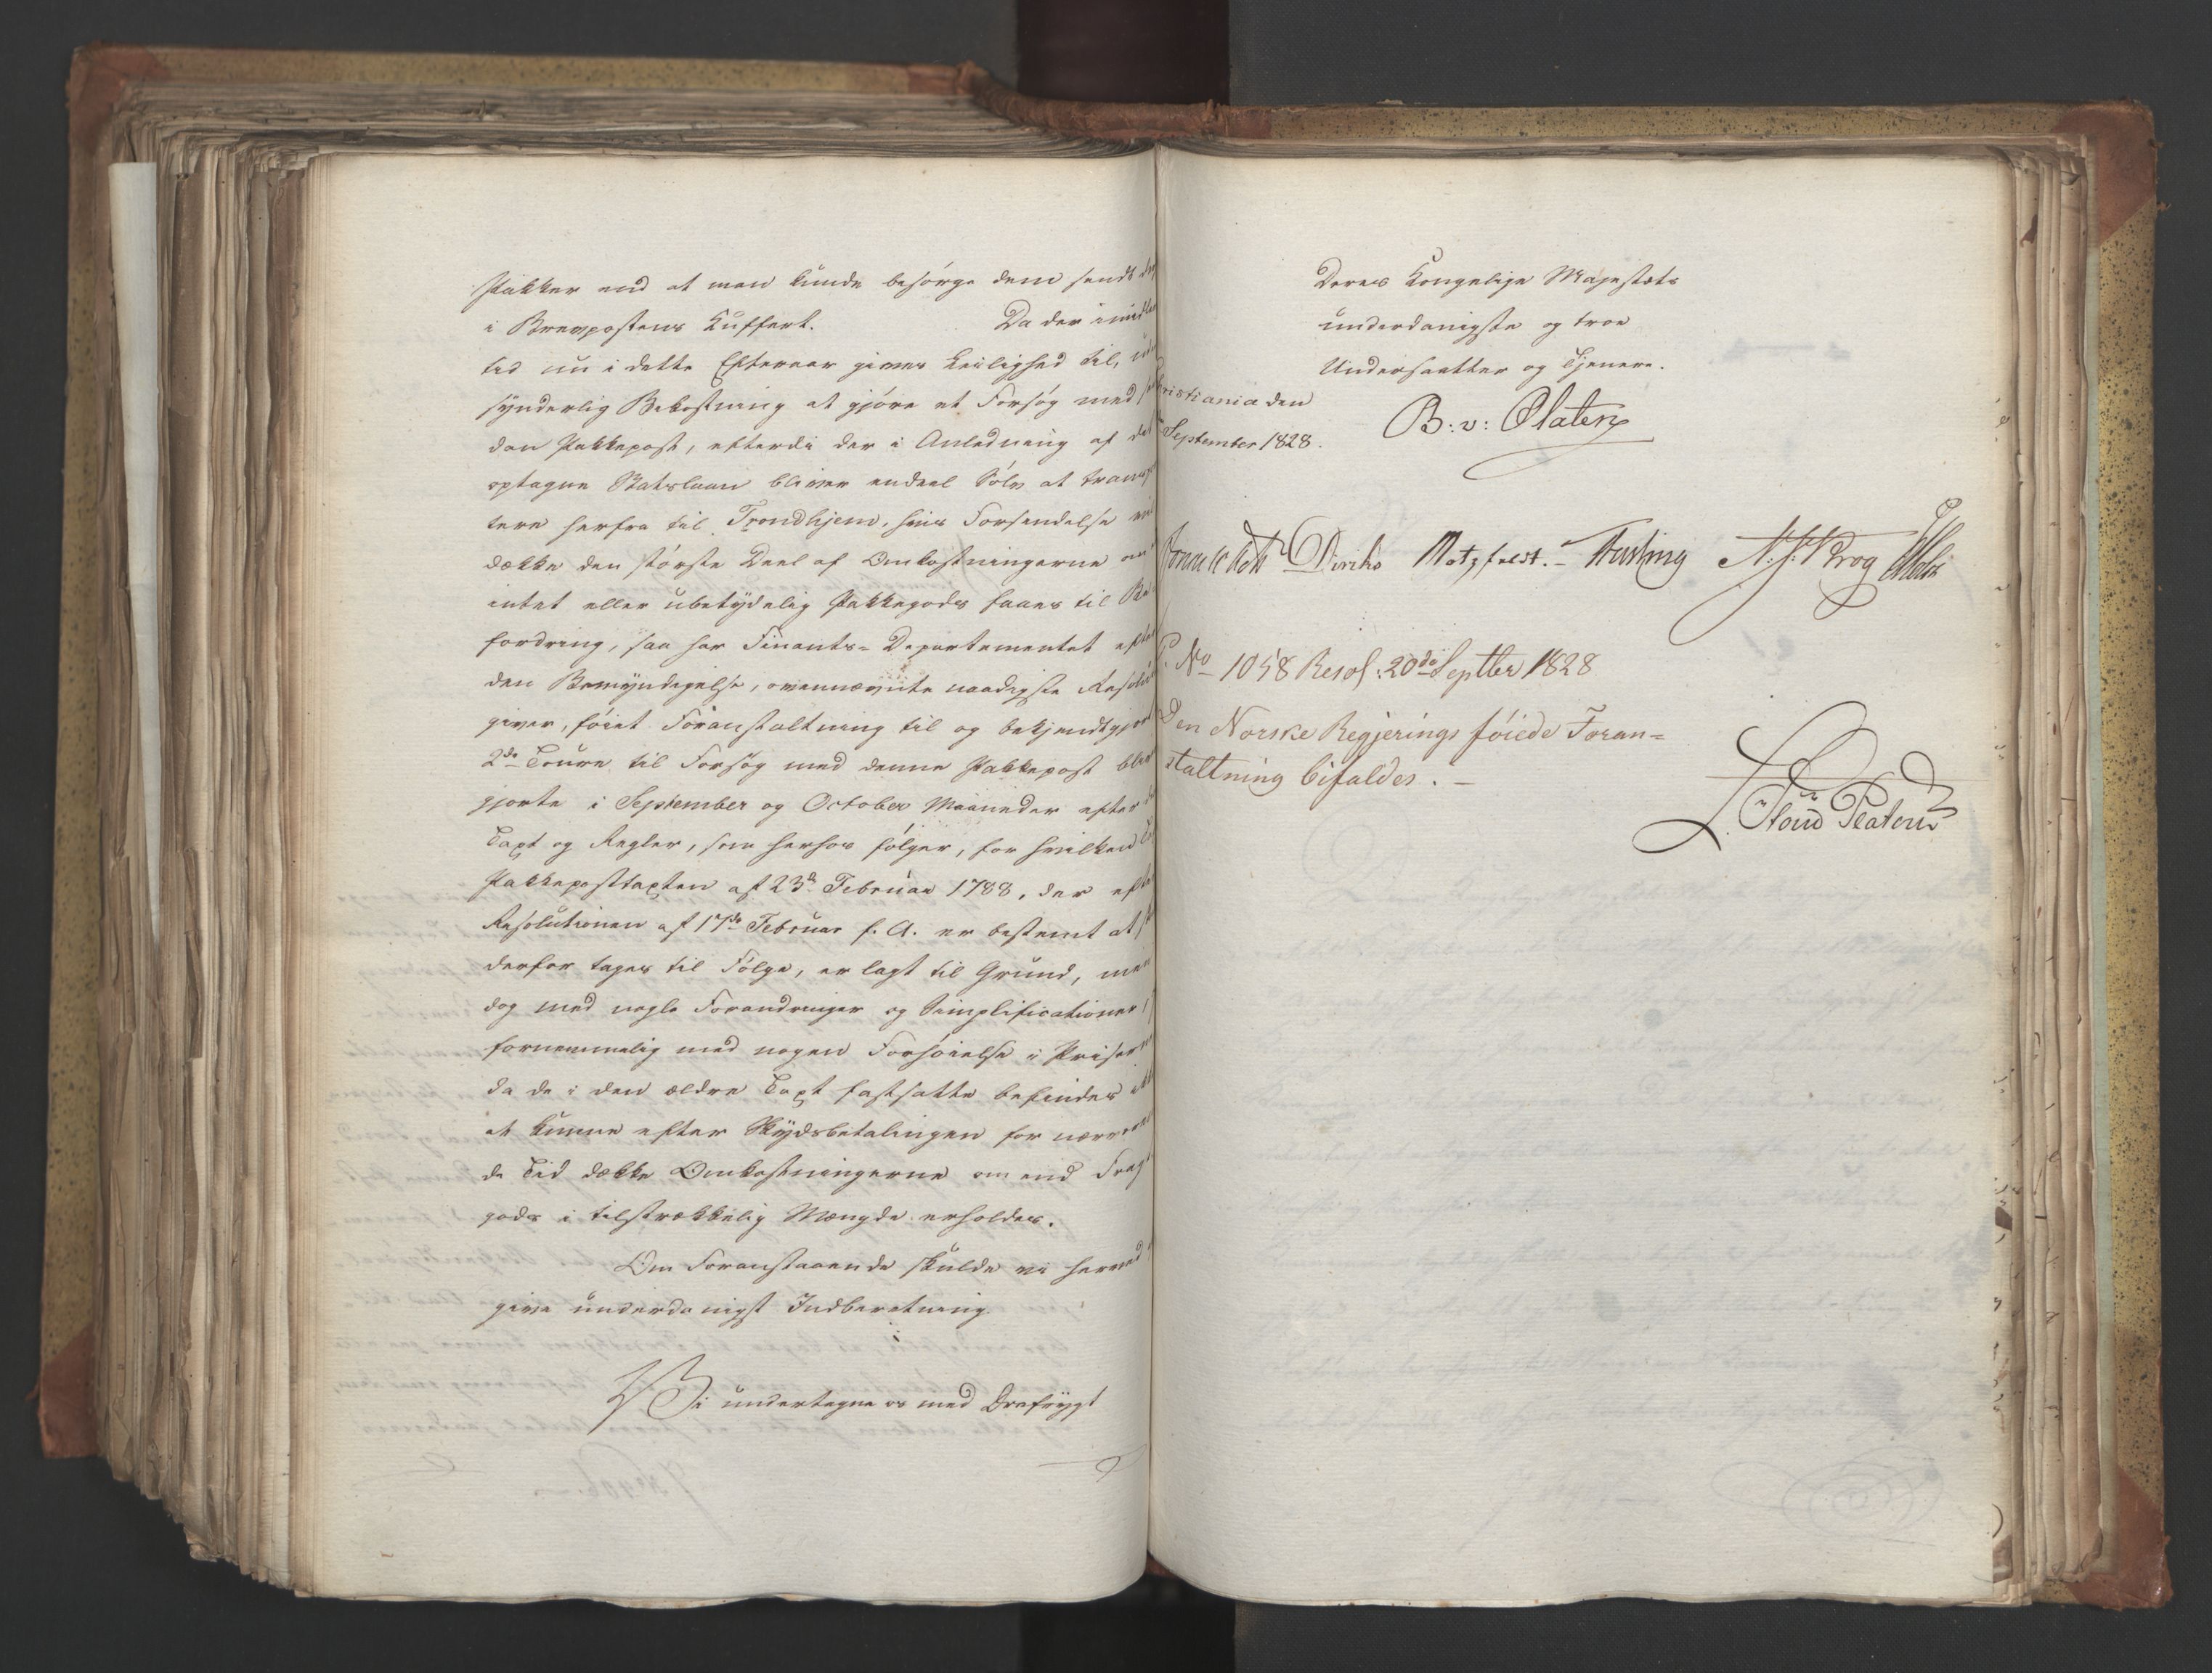 Pakker end at man kunde besørge dem sendt
i Brevpostens Kuffert. Da der imidler
tid nu i dette Efteraar gives Leilighed til, uden
synderlig Bekostning at gjøre et Forsøg med saa
dan Pakkepost, efterdi der i Anledning af det
optagne Statslaan bliver endeel Sølv at transpor
tere herfra til Trondhjem, hvis Forsendelse vil
dække den største Deel af Omkostningerne om
intet eller ubetydelig Pakkegods faaes til Be
fordring, saa har Finants- Departementet efter
den Bemyndigelse, ovennævnte naadigste Resolution
giver, føiet Foranstaltning til og bekjendtgjort
2de Toure til Forsøg med denne Pakkepost bliver
gjorte i September og October Maaneder efter
Taxt og Regler, som herhos følger, for hvilken
Pakkeposttaxten af 23d Februar 1788, der efter
Resolutionen af 17de Februar f. A. er bestemt at
derfor tages til Følge, er lagt til Grund, men
dog med nogle Forandringer og Simplificationer,
fornemmelig med nogen Forhøielse i Priserne
da de i den ældre Taxt fastsatte befindes ikke
at kunne efter Skydsbetalingen for nærværen
de Tid dække Omkostningerne om end Fragt
gods i tilstrækkelig Mængde erholdes.
Om Foranstaaende skulde vi herved
give underdanigst Indberetning.
Vi undertegne os med Ærefrygt
Deres Kongelige Majestæts
underdanigste og troe
Undersaatter og Tjenere.
Christiania den
September 1828.
B: v: Platen
Sommerfeldt Diriks Motzfeldt. Fasting N. J. Krog
No 1058 Resol: 20de Septber 1828
Den Norske Regjerings føiede Foran=
staltning bifaldes. -
Platen